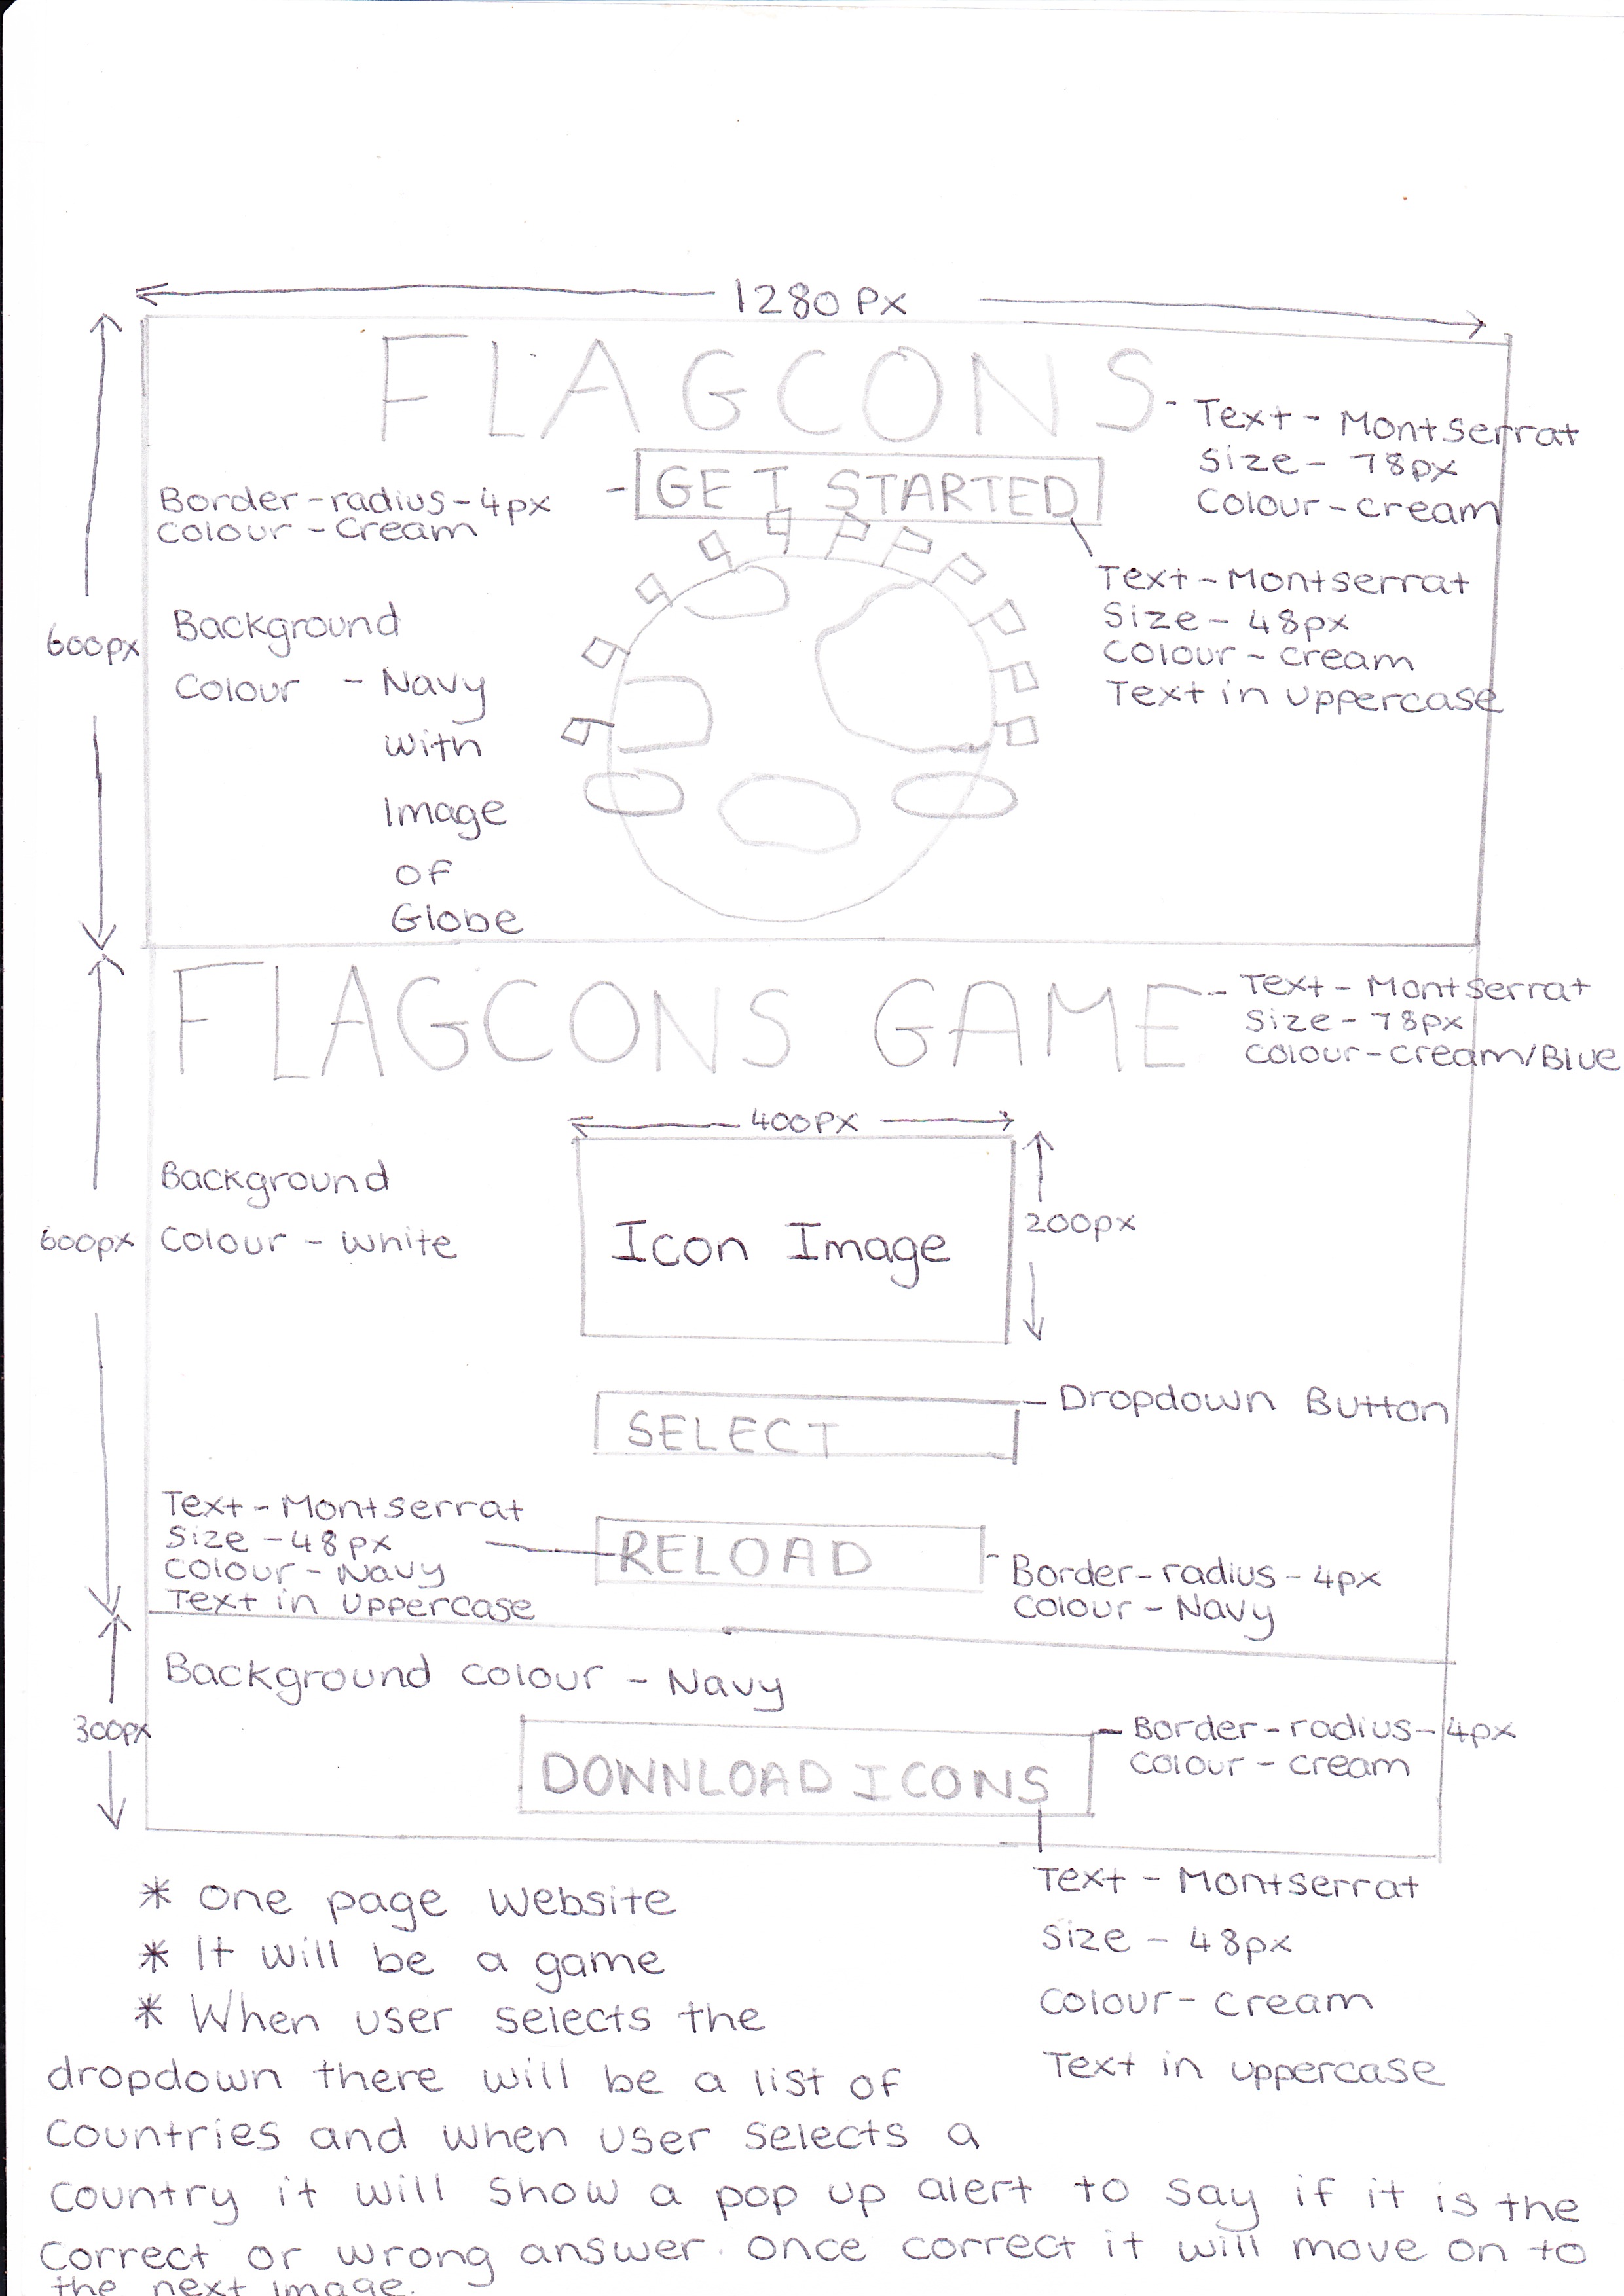 1280 PX
FLAGCONS
- Text - Montserrat
Size - 78px
Colour - cream
GET STARTED
Border-radius-4px
Colour - Cream
Text - Montserrat
Size - 48px
Colour - cream
Text in uppercase
600px
Background
Colour - Navy
with
Image
of
Globe
FLAGCONS GAME
- Text - Montserrat
Size - 78px
Colour - cream/Blue
400PX
Background
Colour - white
600px
Icon Image
200px
- Dropdown Button
SELECT
Text - Montserrat
Size - 48px
Colour - Navy
Text in Uppercase
RELOAD
- Border-radius-4px
Colour - Navy
Background colour - Navy
300px
DOWNLOAD ICONS
- Border-radius-4px
Colour - cream
Text - Montserrat
Size - 48px
Colour - cream
Text in uppercase
* One page website
* It will be a game
* When user selects the
dropdown there will be a list of
Countries and when user selects a
Country it will show a pop up alert to say if it is the
Correct or wrong answer. Once correct it will move on to
the next image.